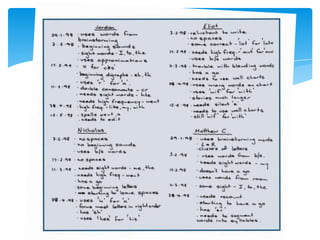 Jordan
29.1.98 - uses words from
brainstorming
3.2.98 - beginning sounds
- sight words - I, to, the
- uses approximations
17.2.98 - 'x' for 'eks'
- beginning digraphs - sh, th
- uses 'r' for
11.3.98 - double consonants - rr
- needs sight words - like
28.4.98 - needs high frequency - went
- high freq. - like, my, with
12.5.98 - spells went, a
- needs to edit
Eliot
3.2.98 - reluctant to write
- no spaces
- some correct - lot for late
17.2.98 - needs high freq. - 'out' for
- uses b/s words
11.3.98 - trouble with blending words
- has a go
- needs to use wall charts
28.4.98 - uses wrong words on chart
- uses 'wif' for 'with'
- stories much longer
12.5.98 - needs silent 'e'
- needs to use wall charts
- still 'wif' for 'with'
Nicholas
3.2.98 - no spaces
- no beginning sounds
- uses b/s words
17.2.98 - no spaces
11.3.98 - needs sight words - me, the
- needs high freq. - went
- has a go
- some beginning letters
- starting to leave spaces
28.4.98 - uses 'u' for 'a'
- forms most letters in right order
- has 'st'
- uses 'thes' for 'this'
Matthew C.
29.1.98 - uses brainstorming words
- L → R
- clusters of letters
3.2. - uses words from b/s.
- needs sight words - my
17.2.98 - doesn't have a go
- uses words from room
11.3.98 - some sight - I, to, the
28.4.98 - needs record
- starting to have a go
- has 'er'
- needs to segment
words into syllables.